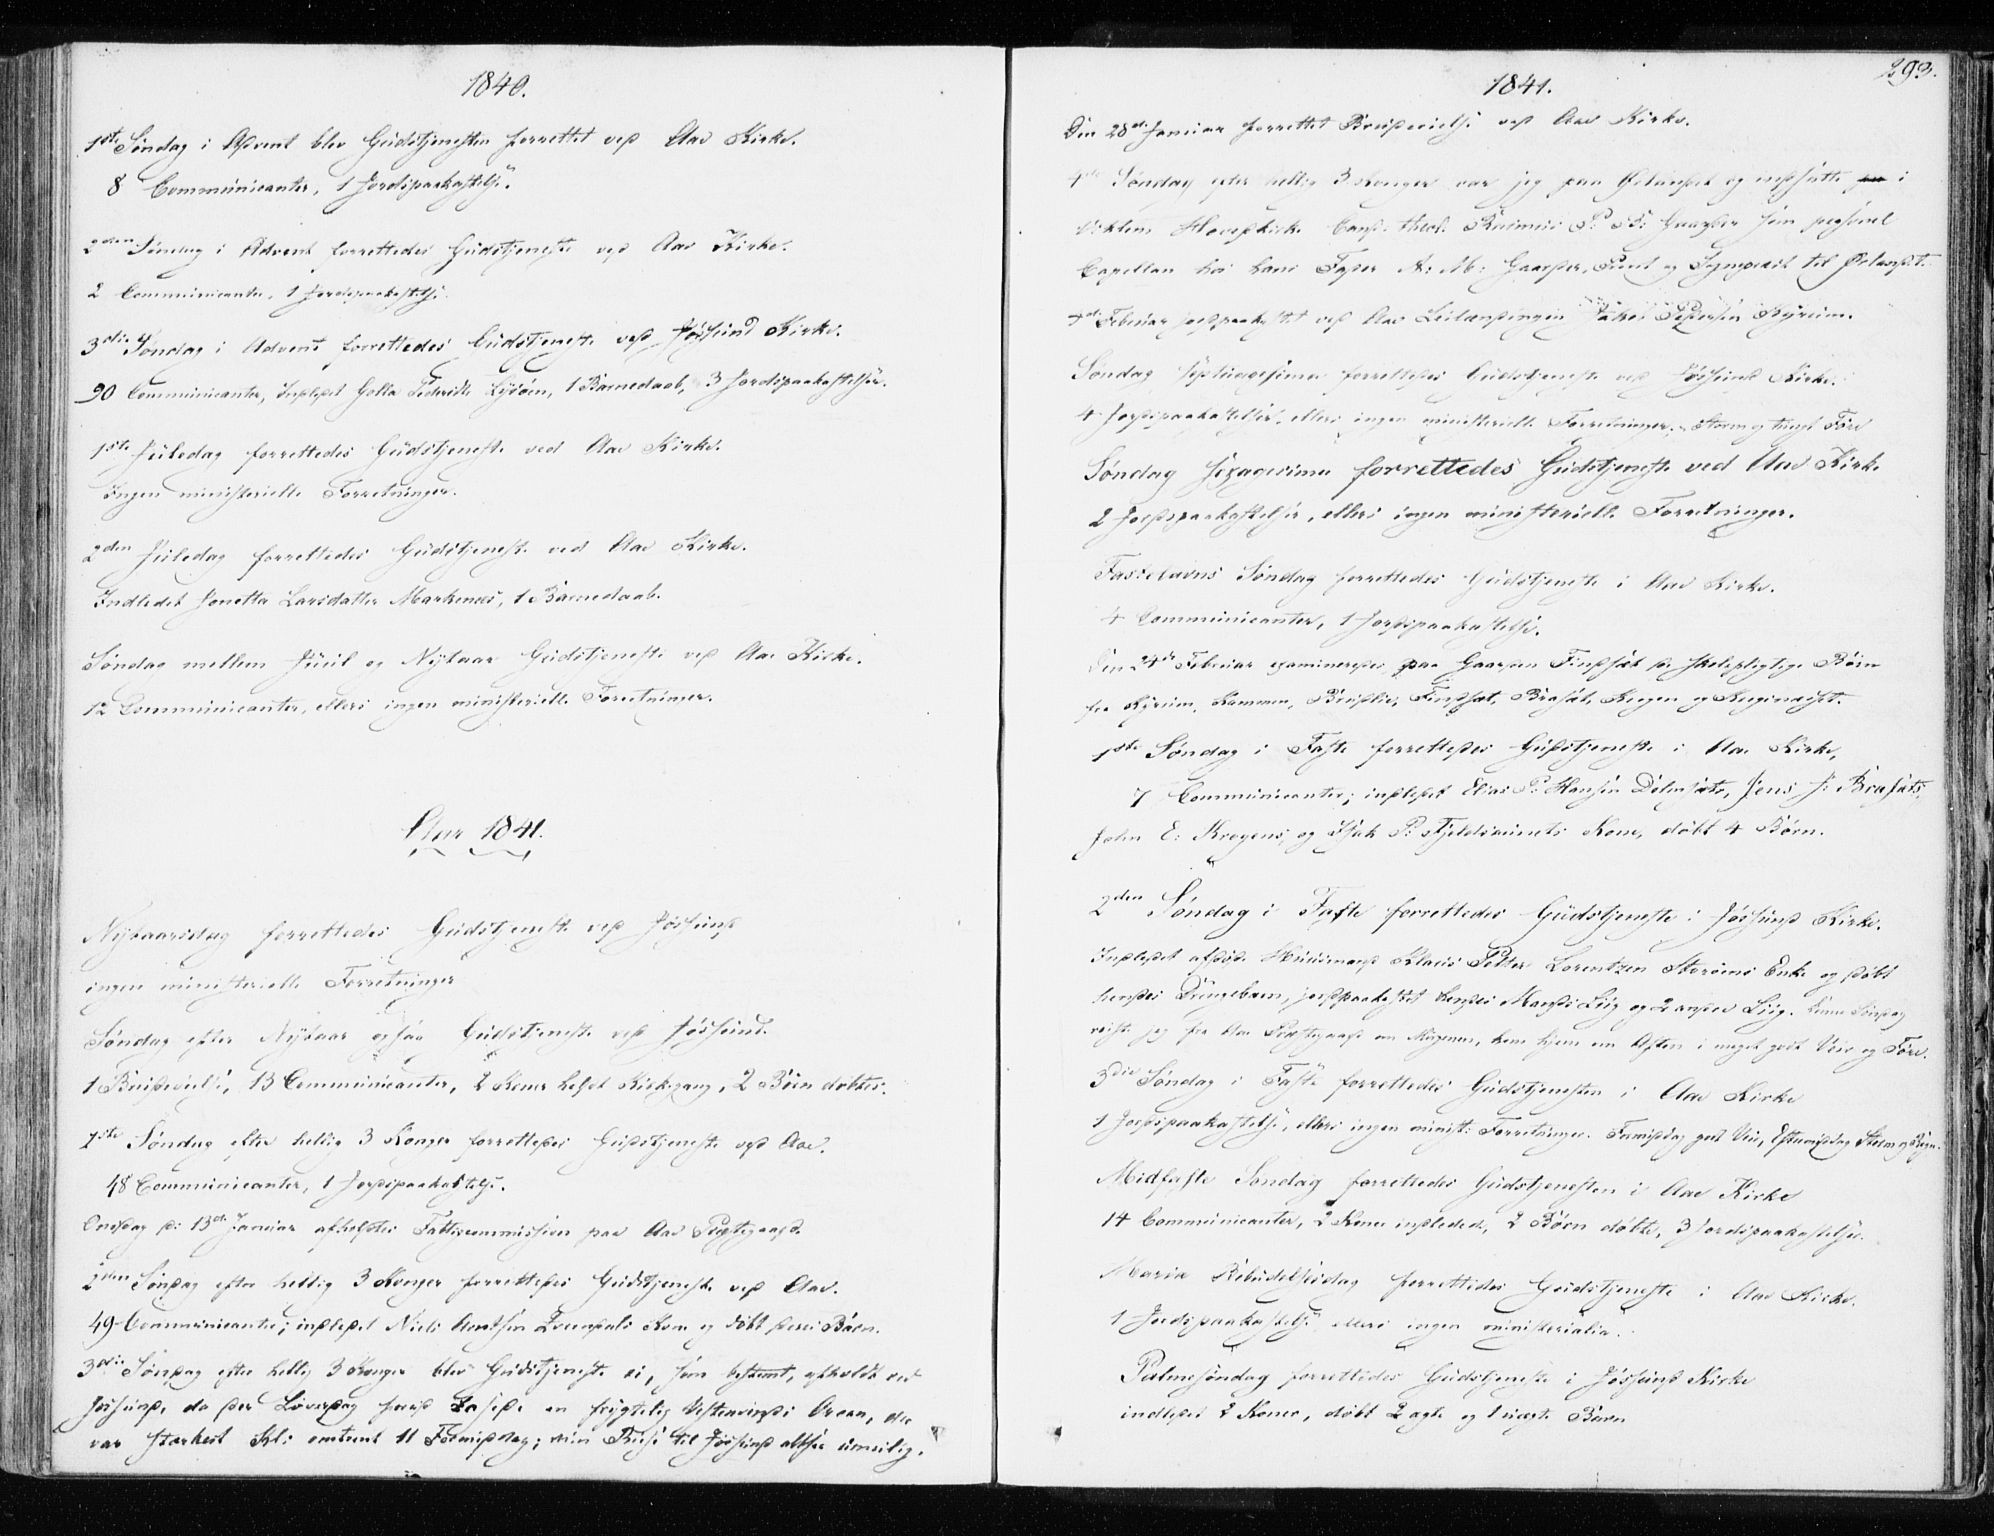 1840.
1ste Søndag i Advent blev Gudstjenesten forrettet ved Aae Kirke.
8 Communicanter, 1 Jordspaakastelse.
2den Søndag i Advent forrettedes Gudstjeneste ved Aae Kirke.
2 Communicanter, 1 Jordspaakastelse.
3die Søndag i Advent forrettedes Gudstjeneste ved Jøssund Kirke.
90 Communicanter, Indledet Golla Lysøen, 1 Barnedaab, 3 Jordspaakastelser.
1ste Juledag forrettedes Gudstjeneste ved Aae Kirke.
Ingen ministerielle Forretninger.
2den Juledag forrettedes Gudstjeneste ved Aae Kirke.
Indledet Jonetta Larsdatter Markenæs, 1 Barnedaab.
Søndag mellem Juul og Nytaar Gudstjeneste ved Aae Kirke.
12 Communicanter, ellers ingen ministerielle Forretninger.
Aar 1841.
Nytaarsdag forrettedes Gudstjeneste ved Jøssund
ingen ministerielle Forretninger
Søndag efter Nytaar ogsaa Gudstjeneste ved Jøssund.
1 Brudevielse, 13 Communicanter, 2 Koner holdt Kirkegang, 2 Børn døbtes.
1ste Søndag efter hellig 3 Konger forrettedes Gudstjeneste ved Aae.
48 Communicanter, 1 Jordspaakastelse.
Onsdag d: 13de Januar afholdtes Fattigcommission paa Aae Præstegaard.
2den Søndag efter hellig 3 Konger forrettedes Gudstjeneste ved Aae.
49 Communicanter; indledet Niels Arntsen Kone og døbt deres Barn.
3die Søndag efter hellig 3 Konger blev Gudstjeneste ei, som bestemt, afholdt ved
Jøssund, da der Løverdag forud en frygtelig Vestenvinds Orcan, der
var stærkest Kl: omtrent 11 Formiddag; min Reise til Jøssund altsaa umulig.
293.
1841.
Den 28de Januar forrettet Brudevielse ved Aae Kirke.
4de Søndag efter hellig 3 Konger var jeg paa Ørlandet og indsatte i
Hovedkirke Cand: theol: Rasmus P: B: Gaarder som personel
Capellan hos hans Fader A: M: Gaarder, Provst og Sognepræst til Ørlandet.
Februar jordpaakastet ved Aae Pedersen Hyrum.
Søndag Septuagesima forrettedes Gudstjeneste ved Jøssund Kirke.
4 Jordspaakastelser, ellers ingen ministerielle Forretninger. Storm og tungt Føre
Søndag Sexagesima forrettedes Gudstjeneste ved Aae Kirke
2 Jordspaakastelser, ellers ingen ministerielle Forretninger.
Fastelavns Søndag forrettedes Gudstjeneste i Aae Kirke.
4 Communicanter, 1 Jordspaakastelse.
Den 24de Februar examineredes paa Gaarden de skolepligtige Børn
fra Hyrum, Krogen og
1ste Søndag i Faste forrettedes Gudstjeneste i Aae Kirke,
7 Communicanter; indledet Elias P: Hansen Jens J:
John E: Krogens, og Isak P: Kone, døbt 4 Børn.
2den Søndag i Faste forrettedes Gudstjeneste i Jøssund Kirke.
Indledet afdøde Huusmand Petter Lorentzen Enke og døbt
hendes Drengebarn, jordpaakastet hendes Mands Liig og 2 andre Liig. Denne Søndag
reiste jeg fra Aae Præstegaard om Morgenen, kom hjem om Aften i meget godt Veir og Føre.
3die Søndag i Faste forrettedes Gudstjenesten i Aae Kirke
1 Jordspaakastelse, ellers ingen minist: Forretninger. Formiddag godt Veir, Eftermiddag Storm og Regn.
Midfaste Søndag forrettedes Gudstjenesten i Aae Kirke
14 Communicanter, 2 Koner indledede, 2 Børn døbte, 3 Jordspaakastelser.
Mariæ Bebudelsesdag forrettedes Gudstjeneste i Aae Kirke.
1 Jordspaakastelse, ellers ingen ministerialia.
Palmesøndag forrettedes Gudstjeneste i Jøssund Kirke
indledet 2 Koner, døbt 2 ægte og 1 uægte Barn